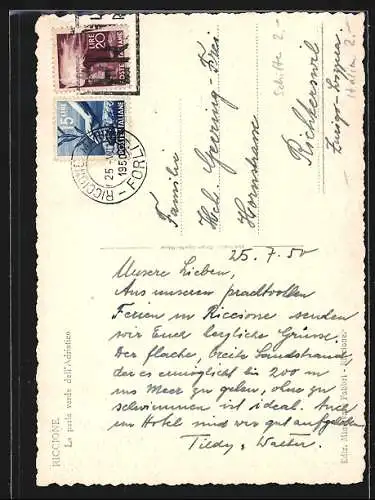 RICCIONE
La perla verde dell'Adriatico
25. 7. 50
Unsere Lieben,
Aus unseren prachtvollen
Ferien in Riccione senden
wir Euch herzliche Grüsse.
Der flache, breite Sandstrand,
der es ermöglicht bis 200 m
ins Meer zu gehen, ohne zu
schwimmen ist ideal. Auch
im Hotel sind wir gut aufgehoben
Tildy, Walter.
Familie
Hch. Geering-Frei
Hornstrasse
Richterswil
LIRE
20
POSTE ITALIANE
5 LIRE
POSTE ITALIANE
RICCIONE
25
1950
FORLI
Schiffe 2.-
Italien 2.-
Ediz. Fabbri - Riccione